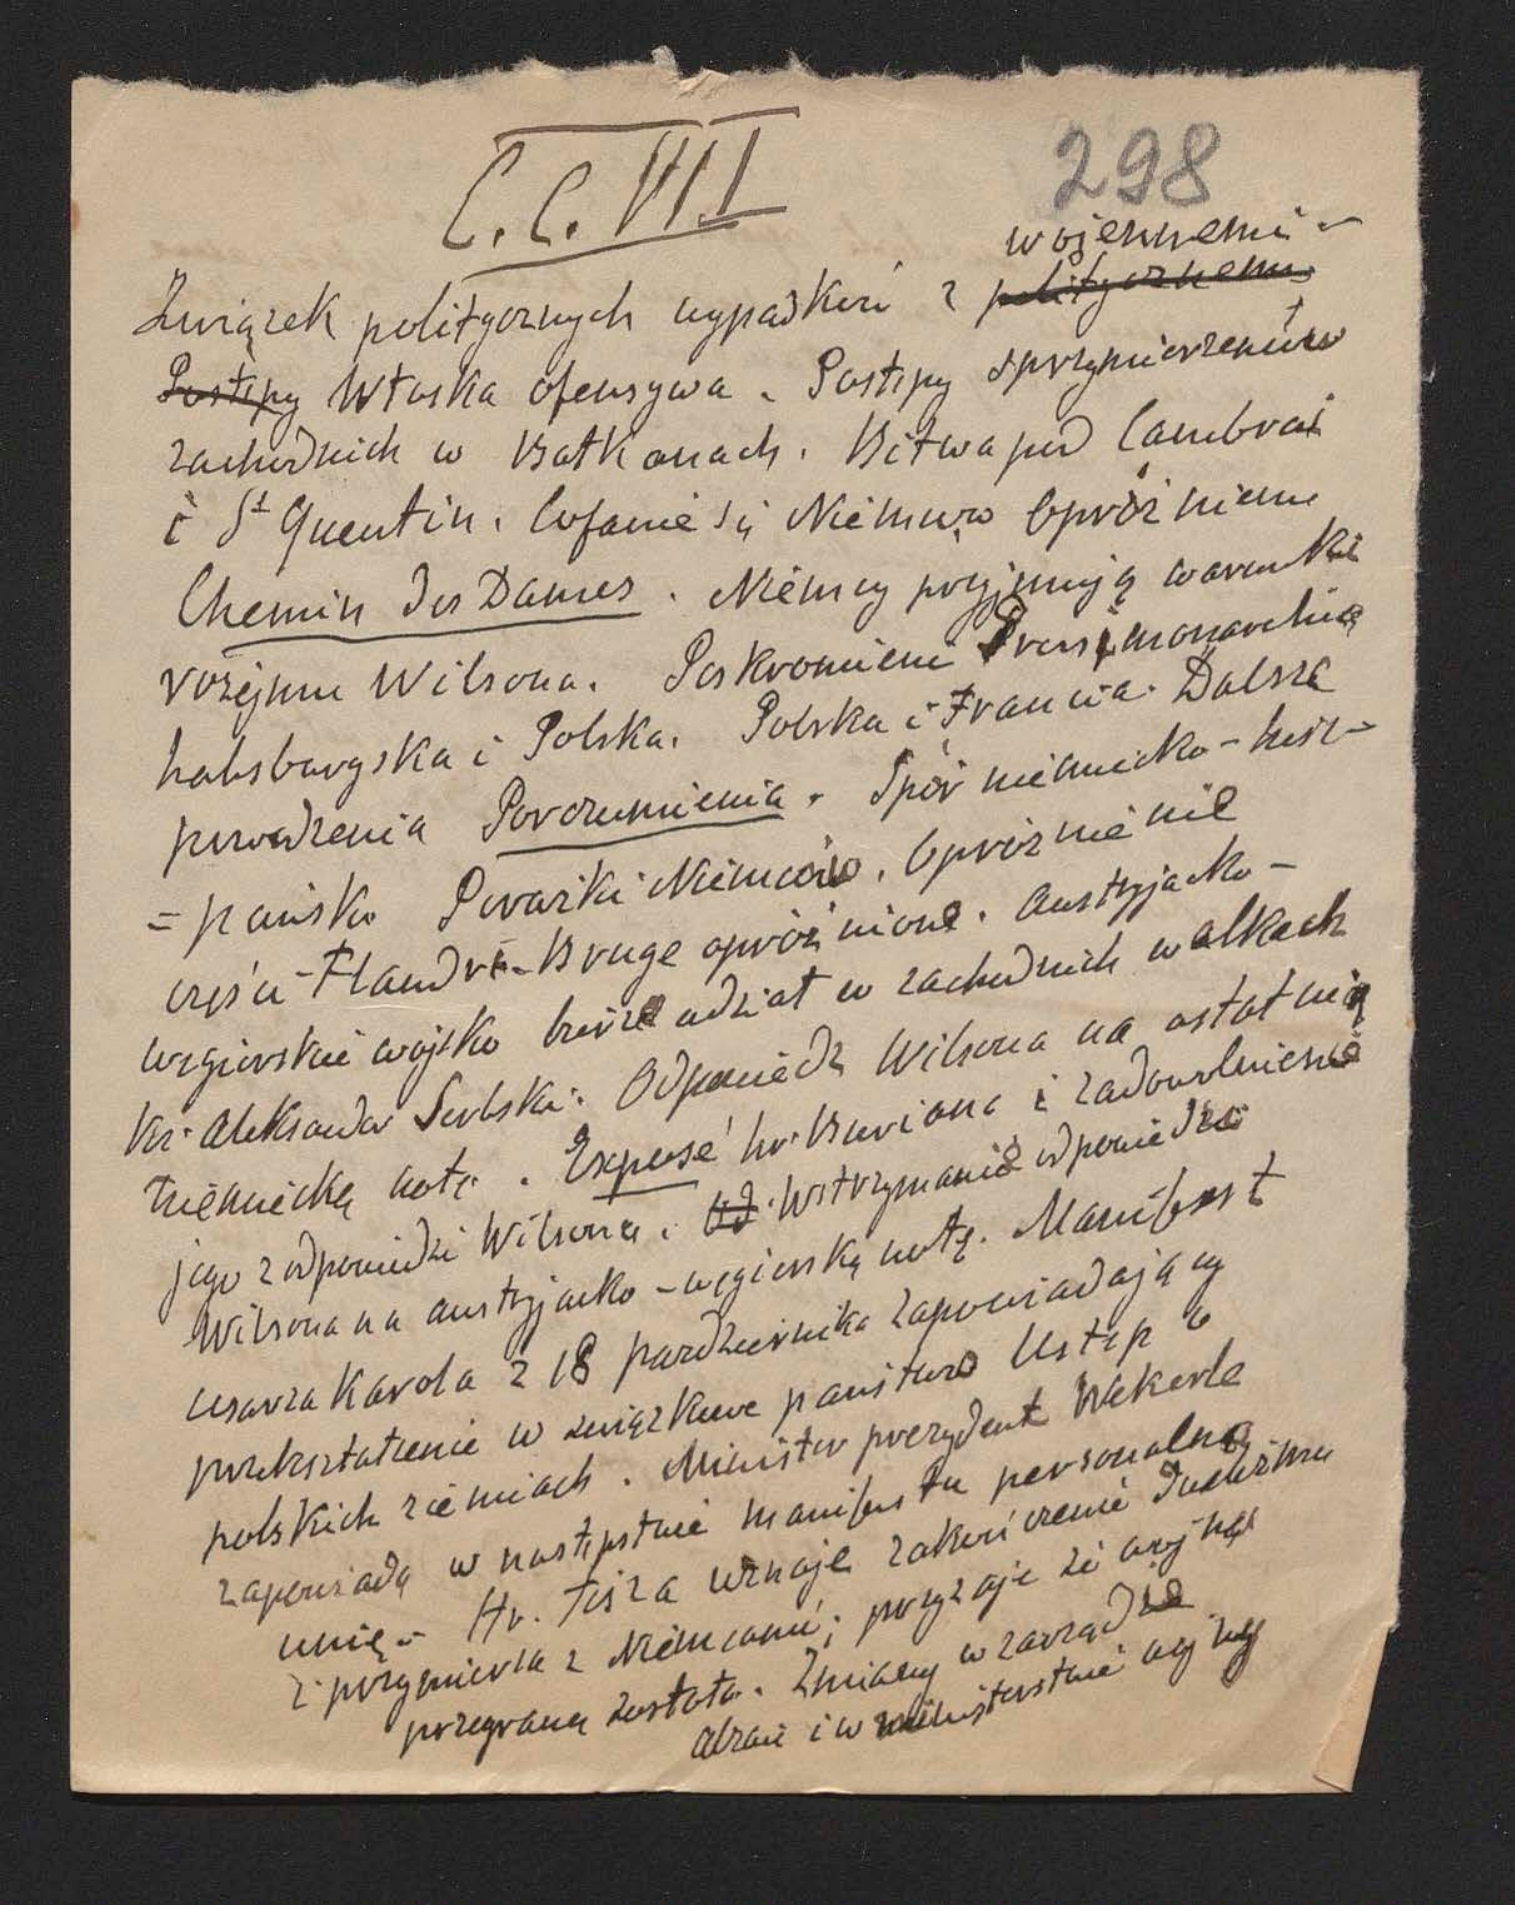 C.C.VII
298
wojennemi -
Związek politycznych wypadków z politycznemi
Postępy Włoska ofensywa. Postępy sprzymierzeńców
zachodnich w Bałkanach. Bitwa pod Cambrai
i St Quentin. Cofanie się Niemców Opróżnienie
Chemin des Dames. Niemcy przyjmują warunki
rozejmu Wilsona. Poskromienie Prus i monarchia
habsburgska i Polska. Polska i Francia. Dalsze
powodzenia Porozumienia. Spór niemiecko-hisz-
=pański Porażki Niemców. Opróżnienie
części Flandri. Bruge opróżnione. Austryjacko-
węgierskie wojsko bierze udział w zachodnich walkach
Ks. Aleksander Serbski. Odpowiedź Wilsona na ostatnią
niemiecką notę. Exposé hr. Buriana i zadowolnienie
jego z odpowiedzi Wilsona. Od. Wstrzymanie odpowiedzi
Wilsona na austryjacko-węgierską notę. Manifest
cesarza Karola z 18 października zapowiadający
przekształcenie w związkowe państwo Ustęp o
polskich ziemiach. Minister prezydent Wekerle
zapowiada w następstwie manifestu personalną
unię - Hr. Tisza uznaje zakończenie
z przymierza z Niemcami; przyznaje że wojna
przegraną została. Zmiany w zarządzie
i w ministerstwie wojny